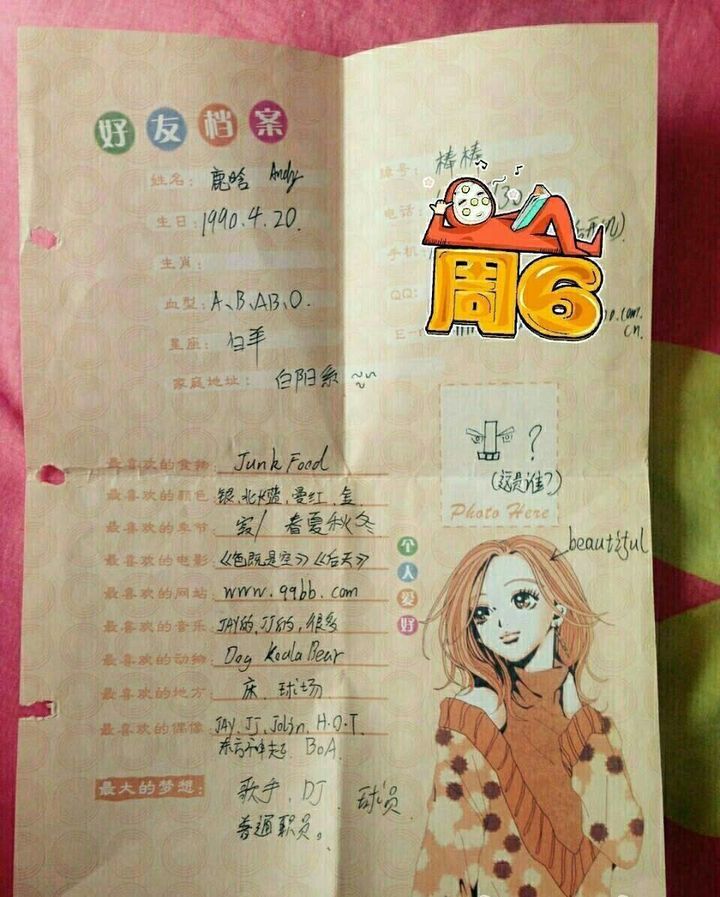 好友档案
姓名: 鹿晗 Andy
生日: 1990.4.20.
生肖:
血型: A、B、AB、O.
星座: 白羊
家庭地址: 白阳系
最喜欢的食物: Junk Food
最喜欢的颜色: 银、北水蓝、爱红、金
最喜欢的季节: 春夏秋冬
最喜欢的电影: 《色既是空》《后天》
最喜欢的网站: www.99bb.com
最喜欢的音乐: JAY的、JJ的,很多
最喜欢的动物: Dog Koala Bear
最喜欢的地方: 床、球场
最喜欢的偶像: JAY、JJ、Jolin、H.O.T.
东方神起、BoA
最大的梦想: 歌手、DJ、球员
普通职员。
绰号: 棒棒
电话:
手机:
QQ:
周6
.com.
cn.
?
(这是谁?)
Photo Here
beautiful
个人爱好